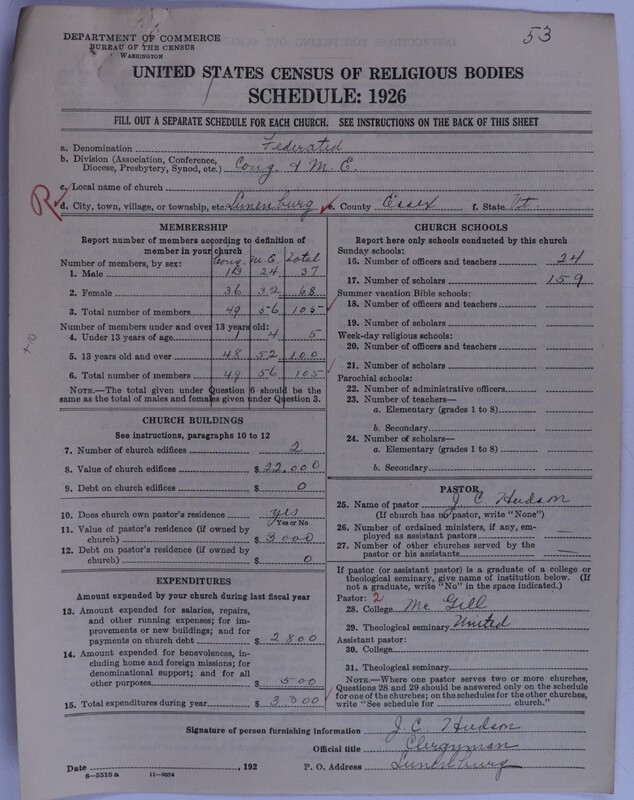 53
DEPARTMENT OF COMMERCE
BUREAU OF THE CENSUS
WASHINGTON
UNITED STATES CENSUS OF RELIGIOUS BODIES
SCHEDULE: 1926
FILL OUT A SEPARATE SCHEDULE FOR EACH CHURCH. SEE INSTRUCTIONS ON THE BACK OF THIS SHEET
a. Denomination Federated
b. Division (Association, Conference, Diocese, Presbytery, Synod, etc.) Cong. & M. E.
c. Local name of church
R d. City, town, village, or township, etc. Lunenburg e. County Essex f. State Vt.
MEMBERSHIP
Report number of members according to definition of member in your church
Number of members, by sex: Cong. M.E. Total
1. Male 13 24 37
2. Female 36 32 68
3. Total number of members 49 56 105
Number of members under and over 13 years old:
4. Under 13 years of age 1 4 5
5. 13 years old and over 48 52 100
6. Total number of members 49 56 105
NOTE.—The total given under Question 6 should be the
same as the total of males and females given under Question 3.
CHURCH BUILDINGS
See instructions, paragraphs 10 to 12
7. Number of church edifices 2
8. Value of church edifices $ 22,000
9. Debt on church edifices $ 0
10. Does church own pastor's residence? yes
Yes or No
11. Value of pastor's residence (if owned by
church) $ 3000
12. Debt on pastor's residence (if owned by
church) $ 0
EXPENDITURES
Amount expended by your church during last fiscal year
13. Amount expended for salaries, repairs,
and other running expenses; for im-
provements or new buildings; and for
payments on church debt $ 2800
14. Amount expended for benevolences, in-
cluding home and foreign missions; for
denominational support; and for all
other purposes $ 500
15. Total expenditures during year $ 3300
CHURCH SCHOOLS
Report here only schools conducted by this church
Sunday schools:
16. Number of officers and teachers 24
17. Number of scholars 159
Summer vacation Bible schools:
18. Number of officers and teachers
19. Number of scholars
Week-day religious schools:
20. Number of officers and teachers
21. Number of scholars
Parochial schools:
22. Number of administrative officers
23. Number of teachers—
a. Elementary (grades 1 to 8)
b. Secondary
24. Number of scholars—
a. Elementary (grades 1 to 8)
b. Secondary
PASTOR
25. Name of pastor J. C. Hudson
(If church has no pastor, write "None")
26. Number of ordained ministers, if any, em-
ployed as assistant pastors
27. Number of other churches served by the
pastor or his assistants —
If pastor (or assistant pastor) is a graduate of a college or
theological seminary, give name of institution below. (If
not a graduate, write "No" in the space indicated.)
Pastor: 2
28. College Mc Gill
29. Theological seminary United
Assistant pastor:
30. College
31. Theological seminary
NOTE.—Where one pastor serves two or more churches,
Questions 28 and 29 should be answered only on the schedule
for one of the churches; on the schedules for the other churches,
write "See schedule for church."
Signature of person furnishing information J. C. Hudson
Official title Clergyman
Date , 192 P. O. Address Lunenburg
6—5518 a 11—9034